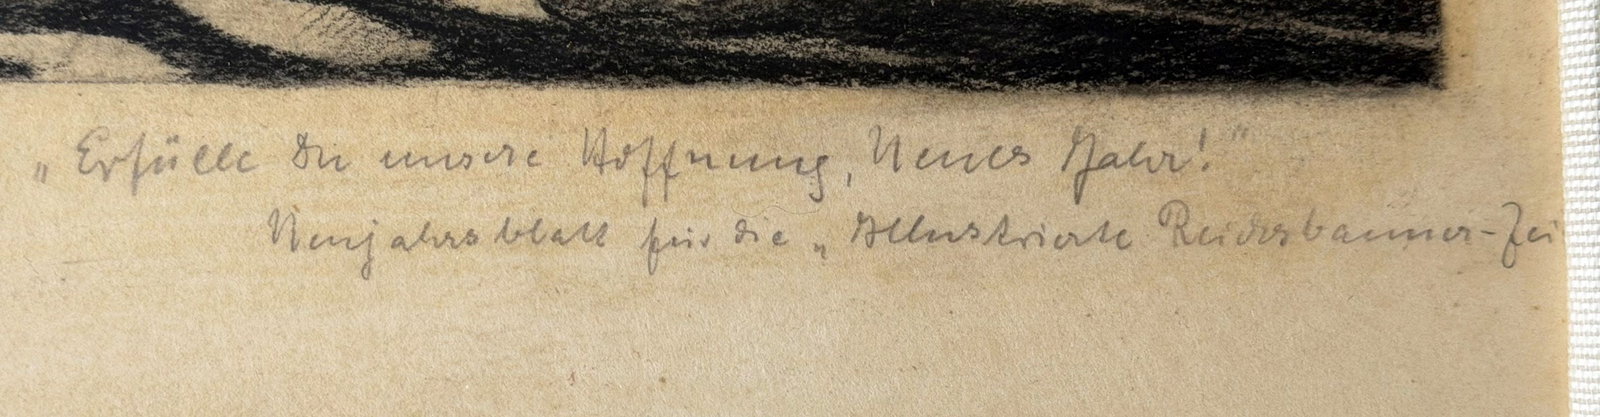 „Erfülle Du unsere Hoffnung, Neues Jahr!"
Neujahrsblatt für die „Illustrierte Reichsbanner-Zei